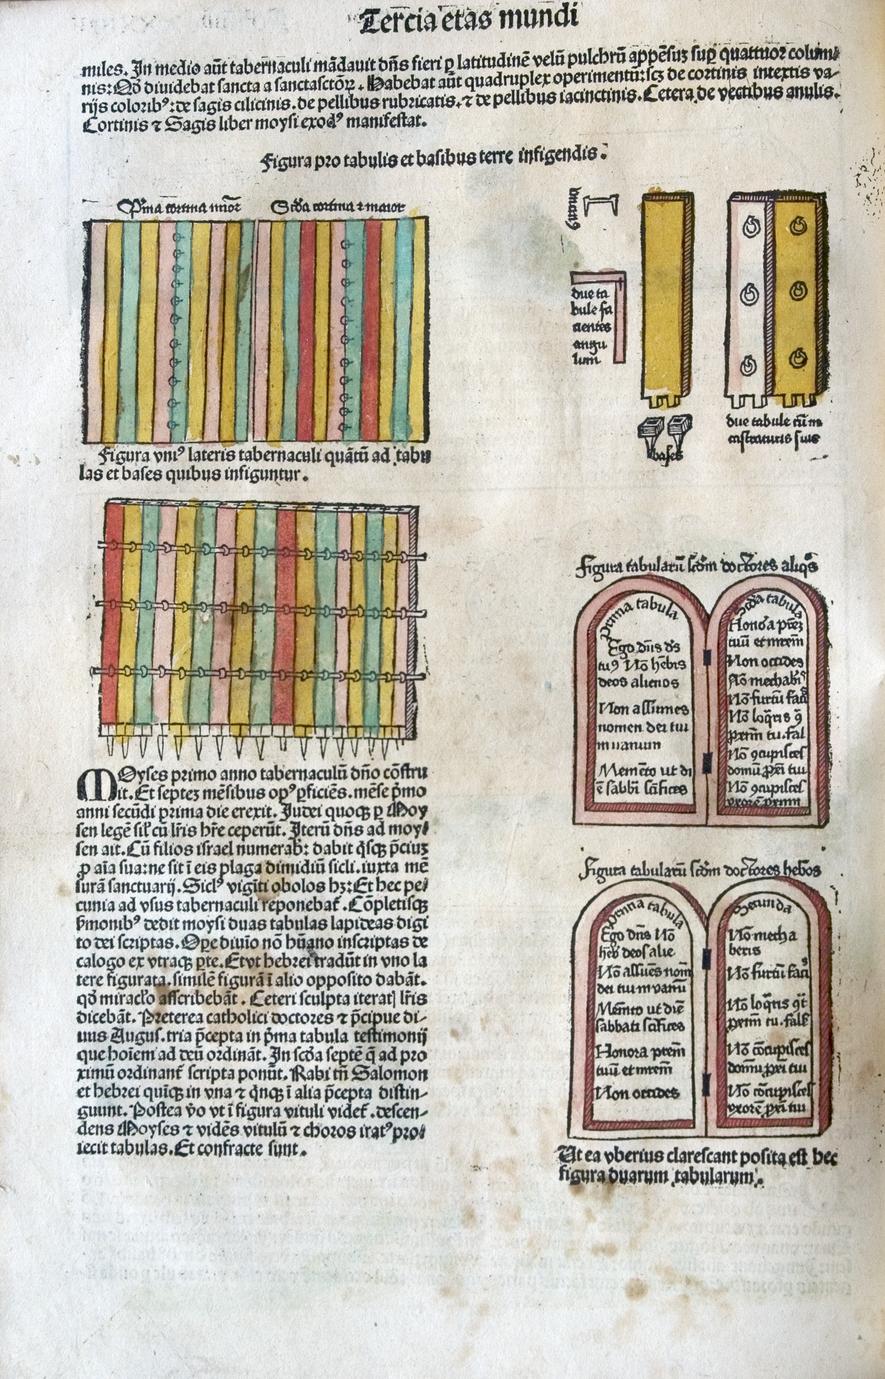 Tercia etas mundi
miles. In medio aūt tabernaculi mādauit dn̄s fieri ꝑ latitudinē velū pulchrū appēsuꝫ suꝑ quattuor colum/
nis: Qđ diuidebat sancta a sanctasctōꝝ. Habebat aūt quadruplex operimentū: scꝫ de cortinis intextis va-
rijs coloribꝰ: de sagis cilicinis. de pellibus rubricatis. ⁊ de pellibus iacinctinis. Cetera de vectibus anulis.
Cortinis ⁊ Sagis liber moysi exodꝰ manifestat.
Figura pro tabulis et basibus terre infigendis.
Pͥma cortina minor
Scđa cortina ⁊ maior
due ta
bule fa
cientes
angu
lum
bases
due tabule cū in
castraturis suis
Figura vniꝰ lateris tabernaculi quātū ad tabu
las et bases quibus infiguntur.
MOyses primo anno tabernaculū dn̄o cōstru
it. Et septeꝫ mēsibus opꝰ ꝑficiēs. mēse pͥmo
anni secūdi prima die erexit. Iudei quoqꝫ ꝑ Moy
sen legē sil̄ cū lr̄is hr̄e ceperūt. Iterū dn̄s ad moy/
sen ait. Cū filios israel numerab̄: dabit qͥsqꝫ p̄ciuꝫ
ꝓ aīa sua: ne sit ī eis plaga dimidiū sicli. iuxta mē
surā sanctuarij. Siclꝰ vigīti obolos hꝫ: Et hec pe/
cunia ad vsus tabernaculi reponebat̄. Cōpletisqꝫ
s̄monibꝰ dedit moysi duas tabulas lapideas digi
to dei scriptas. Oꝑe diuīo nō hūano inscriptas de
calogo ex vtraqꝫ ꝑte. Etvt hebrei tradūt in vno la
tere figurata. similē figurā ī alio opposito dabāt.
qđ miracl̄o asscribebāt. Ceteri sculpta iteratꝭ lr̄is
dicebāt. Preterea catholici doctores ⁊ p̄cipue di-
uus Augus. tria p̄cepta in pͥma tabula testimonij
que hoīem ad deū ordināt. In scđa septē q̄ ad pro
ximū ordinant̄ scripta ponūt. Rabi tn̄ Salomon
et hebrei quīqꝫ in vna ⁊ qͥnqꝫ ī alia p̄cepta distin-
guunt. Postea vo vt ī figura vituli videt̄. descen-
dens Moyses ⁊ vidēs vitulū ⁊ choros iratꝰ pro/
iecit tabulas. Et confracte sunt.
Figura tabularū scđm doctores aliqͦs
Prima tabula
Ego dn̄s ds̄
tuꝰ Nō hēbis
deos alienos
Non assumes
nomen dei tui
in uanum
Memēto ut di
ē sabbi sc̄ifices
Scđa tabula
Honora pr̄eꝫ
tuū et mr̄em
Non occides
Nō mechabͥs
Nō furtū faci
Nō loqͥris ꝯ
proxim̄ tu. fal
Nō ꝯcupisces
domū ꝓxi tui
Nō ꝯcupisces
vxorē ꝓximi
Figura tabularū scđm doctores heb̄os
Prima tabula
Ego dn̄s Nō
heb̄ deos alie.
Nō assūes nom̄
dei tui in vanū
Memēto ut diē
sabbati sc̄ifices
Honora pr̄em
tuū et mr̄em
Non occides
Secunda
Nō mecha
beris
Nō furtū faci
Nō loqͥris
proxim̄ tu. fals̄
Nō cōcupisces
domū ꝓxi tui
Nō cōcupisces
vxorē ꝓxi tui
Ut ea vberius clarescant posita est hec
figura duarum tabularum.